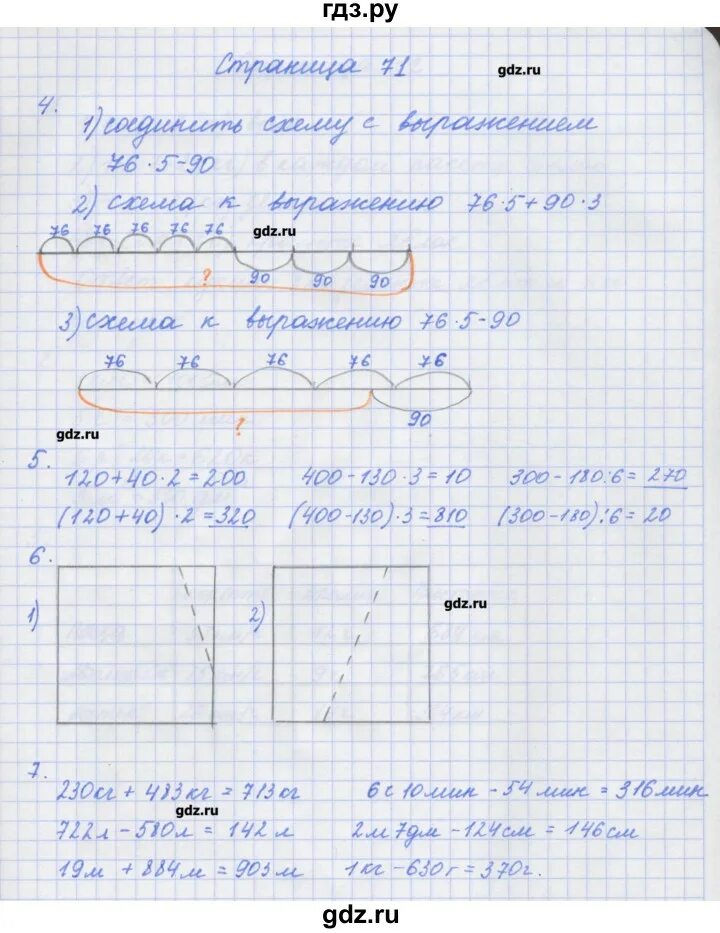 гдз.ру
Страница 71
gdz.ru
4.
1) соединить схему с выражением
76·5-90
2) схема к выражению 76·5+90·3
76 76 76 76 76
gdz.ru
? 90 90 90
3) схема к выражению 76·5-90
76 76 76 76 76
? 90
gdz.ru
5.
120+40·2=200 400-130·3=10 300-180:6=270
(120+40)·2=320 (400-130)·3=810 (300-180):6=20
6.
1) 2) gdz.ru
7.
230кг + 483кг = 713кг 6с 10мин - 54 мин = 316мин
gdz.ru
722л - 580л = 142 л 2м 7дм - 124см = 146см
19м + 884м = 903м 1кг - 630г = 370г.
gdz.ru